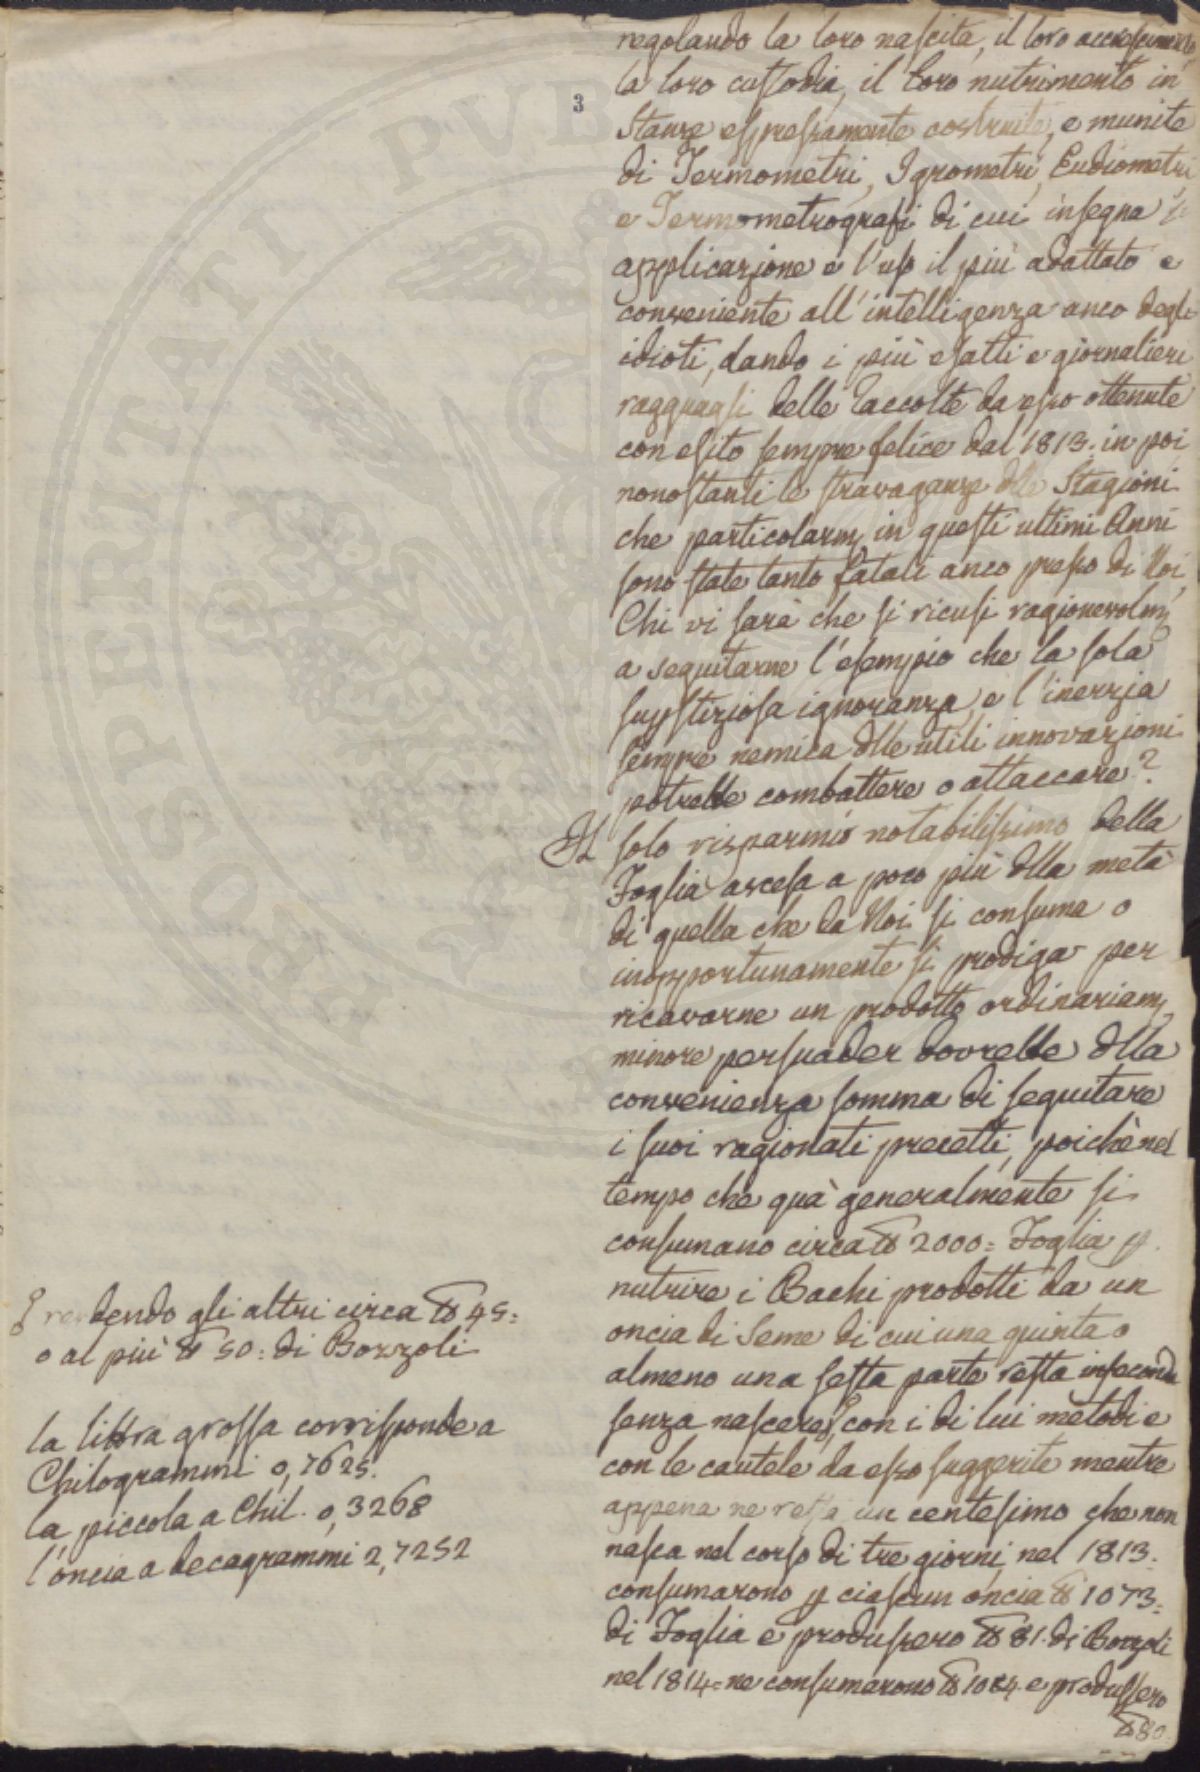 3
regolando la loro nascita, il loro accrescimento
la loro custodia, il loro nutrimento in
Stanze espressamente costruite, e munite
di Termometri, Igrometri, Eudiometri
e Termometrografi di cui insegna l'
applicazione e l'uso il più adattato e
conveniente all'intelligenza anco degli
idioti, dando i più esatti e giornalieri
ragguagli delle Raccolte da esso ottenute
con esito sempre felice dal 1813. in poi
nonostanti le stravaganze dlle Stagioni
che particolarm, in questi ultimi Anni
sono state tanto fatali anco presso di Noi,
Chi vi sarà che si ricusi ragionevolm,
a seguitarne l'esempio che la sola
supstiziosa ignoranza, e l'inerzia
sempre nemica dlle utili innovazioni
potrebbe combattere o attaccare?
Il solo risparmio notabilissimo della
Foglia ascesa a poco più dlla metà
di quella che da Noi si consuma o
inopportunamente si prodiga per
ricavarne un prodotto ordinariam,
minore persuader dovrebbe dlla
convenienza somma di seguitare
i suoi ragionati precetti, poichè nel
tempo che quà generalmente si
consumano circa ℔ 2000= Foglia p
nutrire i Bachi prodotti da un
oncia di Seme di cui una quinta o
almeno una sesta parte resta infeconda
senza nascere, con i di lui metodi e
con le cautele da esso suggerite mentre
appena ne resta un centesimo che non
nasca nel corso di tre giorni, nel 1813.
consumarono p ciascun oncia ℔ 1073=
di Foglia e produssero ℔ 81. di Bozzoli
nel 1814= ne consumarono ℔ 1084 e produssero
℔ 80.
rendendo gli altri circa ℔ 45=
o al più ℔ 50: di Bozzoli
la libbra grossa corrisponde a
Chilogrammi 0,7625.
la piccola a Chil. 0,3268
l'oncia a decagrammi 2,7252
PROSPERITATI PVB